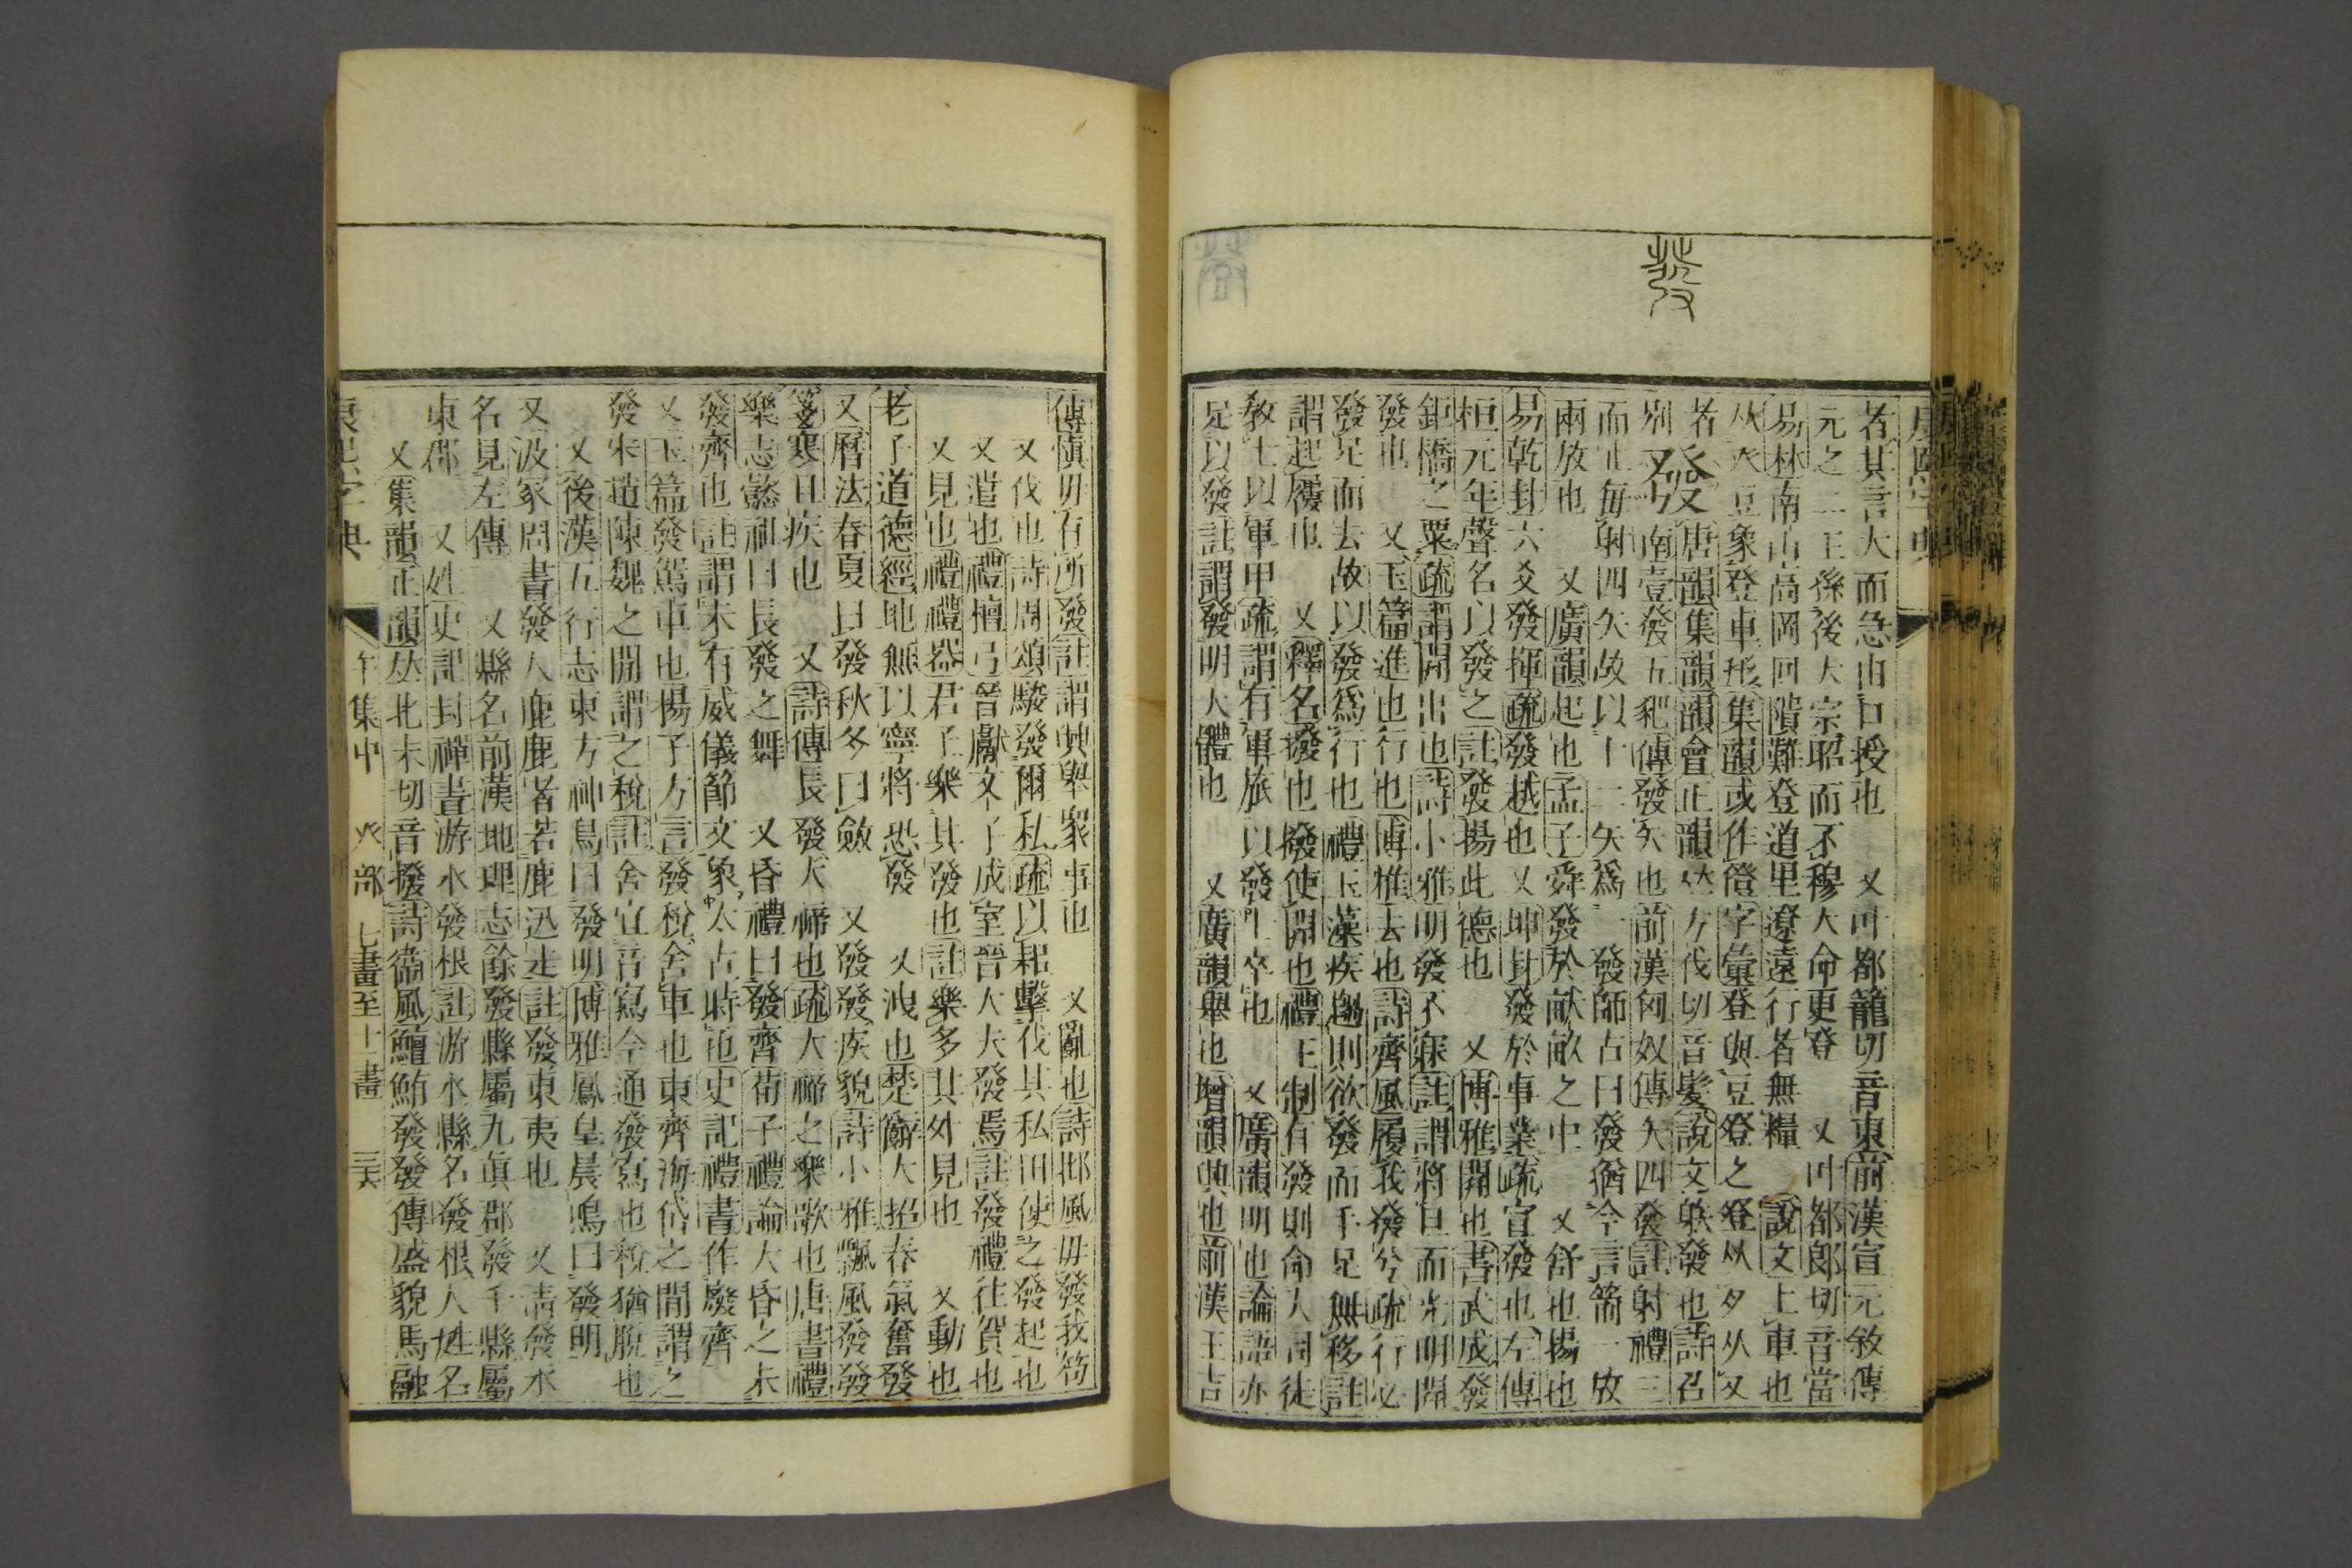 發
者其言大而急由口授也 又叶都籠切音東前漢宣元敘傳
元之二王孫後大宗昭而不穆大命更登 又叶都郎切音當
易林南山高岡回隤難登道里遼遠行者無糧 說文上車也
从癶豆象登車形集韻或作僜字彙登與豆登之登从夕从又
者 發 唐韻集韻韻會正韻𠀤方伐切音髮說文躲發也詩召
別 南壹發五豝傳發矢也前漢匈奴傳矢四發註射禮三
而止每射四矢故以十二矢爲一發師古曰發猶今言箭一放
兩放也 又廣韻起也孟子舜發於畎畝之中 又舒也揚也
易乾卦六爻發揮疏發越也又坤卦發於事業疏宣發也左傳
桓元年聲名以發之註發揚此德也 又博雅開也書武成發
鉅橋之粟疏謂開出也詩小雅明發不寐註謂將旦而光明開
發也 又玉篇進也行也博雅去也詩齊風履我發兮疏行必
發足而去故以發爲行也禮玉藻疾趨則欲發而手足無移註
謂起屨也 又釋名撥也撥使開也禮王制有發則命大司徒
敎士以軍甲疏謂有軍旅以發士卒也 又廣韻明也論語亦
足以發註謂發明大體也 又廣韻舉也增韻興也前漢王吉
傳愼毋有所發註謂興舉衆事也 又亂也詩邶風毋發我笱
又伐也詩周頌駿發爾私疏以耜擊伐其私田使之發起也
又遣也禮檀弓晉獻文子成室晉大夫發焉註發禮往賀也
又見也禮禮器君子樂其發也註樂多其外見也 又動也
老子道德經地無以寧將恐發 又洩也楚辭大招春氣奮發
又曆法春夏曰發秋冬曰斂 又發發疾貌詩小雅飄風發發
箋寒且疾也 又詩傳長發大禘也疏大禘之樂歌也唐書禮
樂志懿祖曰長發之舞 又昏禮曰發齊荀子禮論大昏之未
發齊也註謂未有威儀節文象太古時也史記禮書作廢齊
又玉篇發駕車也揚子方言發稅舍車也東齊海岱之閒謂之
發宋趙陳魏之閒謂之稅註舍宜音寫今通發寫也稅猶脫也
又後漢五行志東方神鳥曰發明博雅鳳皇晨鳴曰發明
又汲冢周書發人鹿鹿者若鹿迅走註發東夷也 又淸發水
名見左傳 又縣名前漢地理志餘發縣屬九眞郡發干縣屬
東郡 又姓史記封禪書游水發根註游水縣名發根人姓名
又集韻正韻𠀤北末切音撥詩衞風鱣鮪發發傳盛貌馬融
午集中 癶部 七畫至十二畫 三六